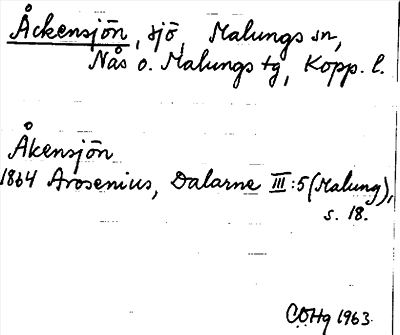 Åckensjön, sjö, Malungs sn,
Nås o. Malungs tg, Kopp. l.
Åkensjön
1864 Arosenius, Dalarne III:5 (Malung),
s. 18.
COHg 1963.